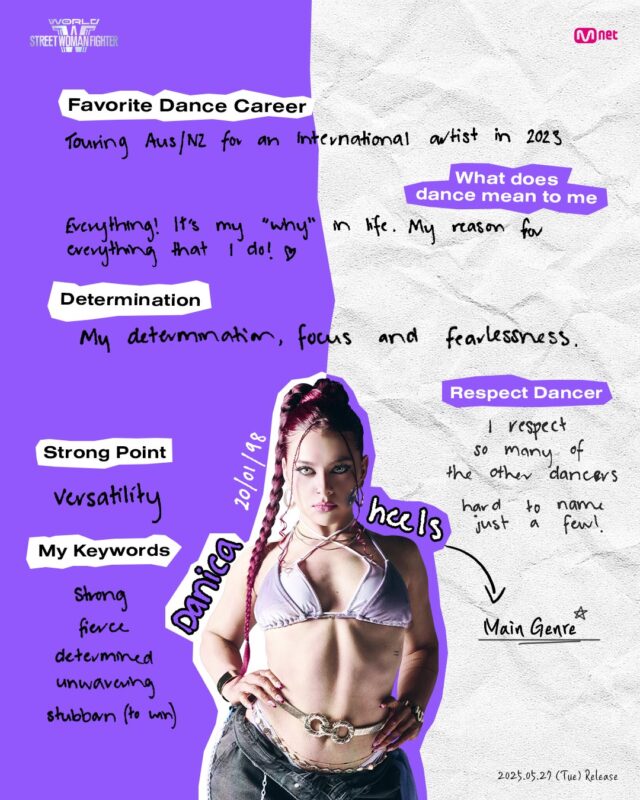 WORLD
W
STREET WOMAN FIGHTER
Mnet
Favorite Dance Career
Touring Aus/NZ for an International artist in 2023
What does
dance mean to me
Everything! It's my "why" in life. My reason for
everything that I do! ♡
Determination
My determination, focus and fearlessness.
Respect Dancer
I respect
so many of
the other dancers
hard to name
just a few!
Strong Point
Versatility
20/01/98
Danica
heels
Main Genre ☆
My Keywords
Strong
fierce
determined
unwavering
stubborn (to win)
2025.05.27 (Tue) Release